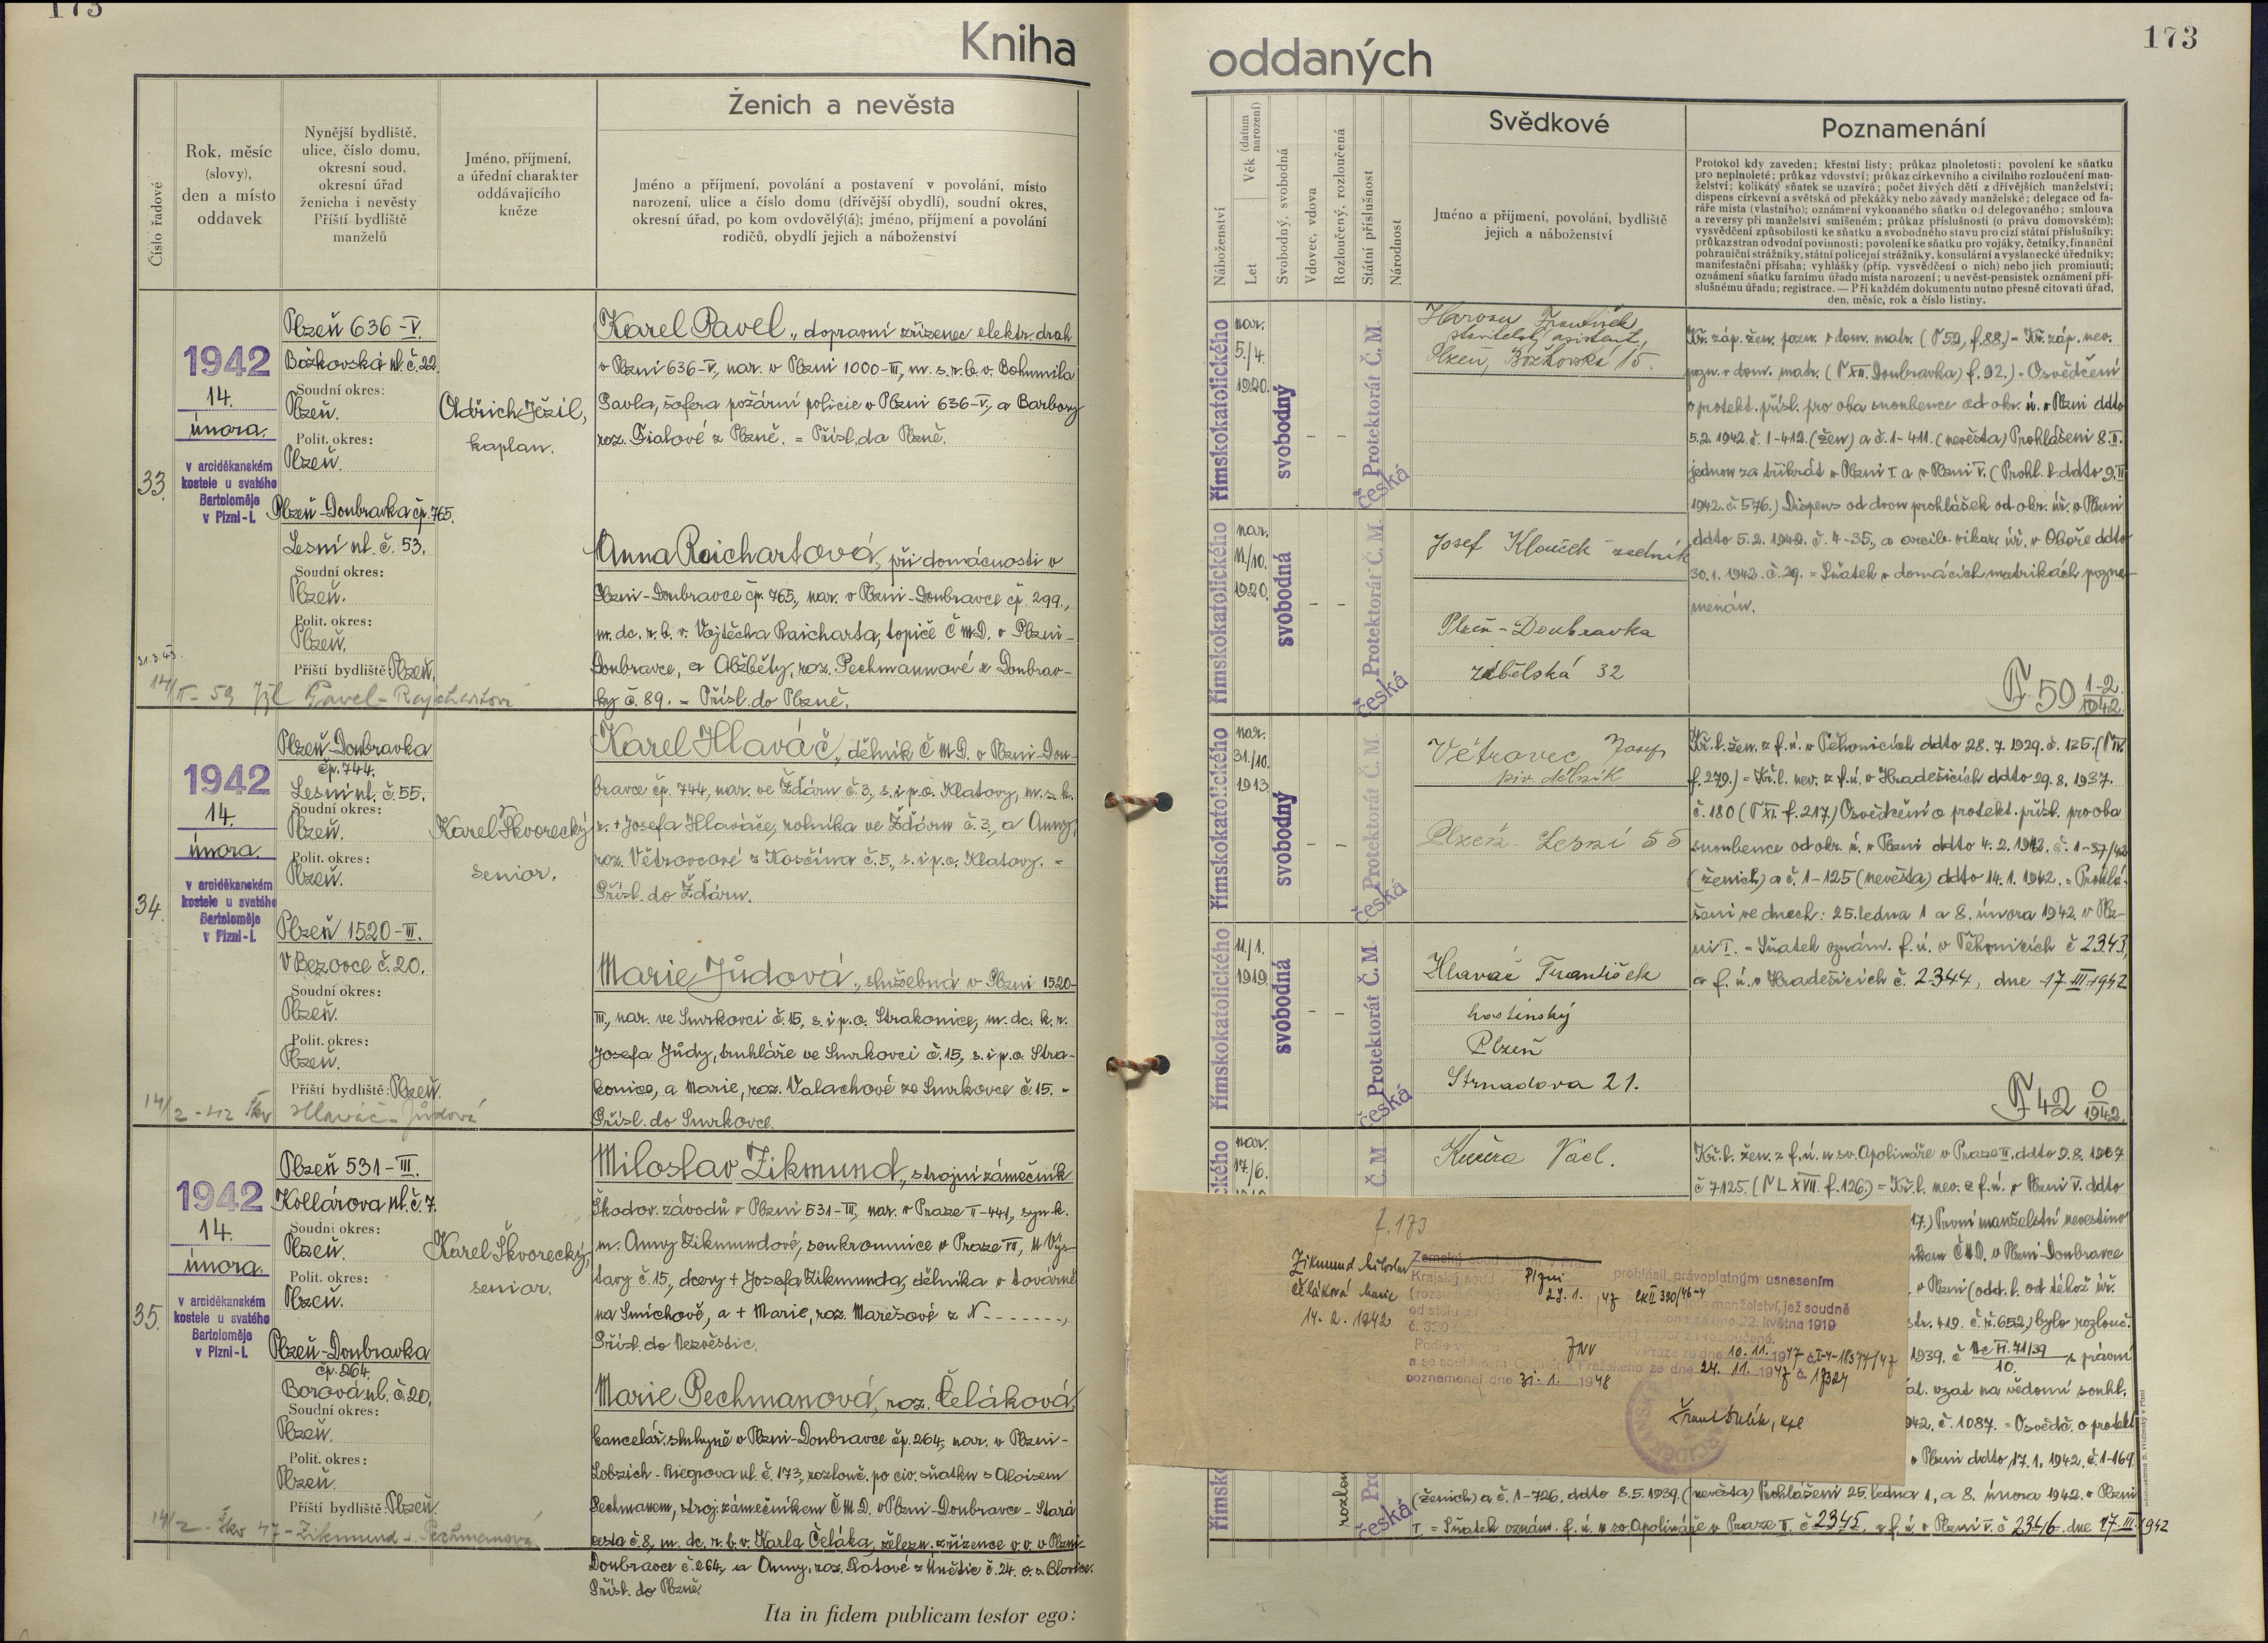 173
Kniha
Číslo řadové
Rok, měsíc
(slovy),
den a místo
oddavek
Nynější bydliště,
ulice, číslo domu,
okresní soud,
okresní úřad
ženicha i nevěsty
Příští bydliště
manželů
Jméno, příjmení,
a úřední charakter
oddávajícího
kněze
Ženich a nevěsta
Jméno a příjmení, povolání a postavení v povolání, místo
narození, ulice a číslo domu (dřívější obydlí), soudní okres,
okresní úřad, po kom ovdovělý(á); jméno, příjmení a povolání
rodičů, obydlí jejich a náboženství
33.
1942
14.
února.
v arciděkanském
kostele u svatého
Bartoloměje
v Plzni-I.
Plzeň 636-V.
Božkovská ul. č. 22.
Soudní okres:
Plzeň.
Polit. okres:
Plzeň.
Plzeň-Doubravka čp. 765.
Lesní ul. č. 53.
Soudní okres:
Plzeň.
Polit. okres:
Plzeň.
Příští bydliště: Plzeň.
Oldřich Ježil,
kaplan.
Karel Pavel, dopravní zřízenec elektr. drah
v Plzni 636-V, nar. v Plzni 1000-III, m. s. r. b. v. Bohumila
Pavla, šoféra požární policie v Plzni 636-V, a Barbory
roz. Fialové z Plzně. = Přísl. do Plzně.
Anna Raichartová, při domácnosti v
Plzni-Doubravce čp. 765, nar. v Plzni-Doubravce čp. 299.,
m. dc. r. b. v. Vojtěcha Raicharta, topiče ČMD. v Plzni-
Doubravce, a Alžběty, roz. Pechmannové z Doubrav-
ky č. 89. = Přísl. do Plzně.
34.
1942
14.
února.
v arciděkanském
kostele u svatého
Bartoloměje
v Plzni-I.
Plzeň-Doubravka
čp. 744.
Lesní ul. č. 55.
Soudní okres:
Plzeň.
Polit. okres:
Plzeň.
Plzeň 1520-III.
V Bezovce č. 20.
Soudní okres:
Plzeň.
Polit. okres:
Plzeň.
Příští bydliště: Plzeň.
14/2-42 Škv Hlaváč-Jůdová
Karel Škvorecký
senior.
Karel Hlaváč, dělník ČMD. v Plzni-Dou-
bravce čp. 744, nar. ve Žďáru č. 3, s. i p. o. Klatovy, m. s. k.
r. + Josefa Hlaváče, rolníka ve Žďáru č. 3, a Anny,
roz. Větrovcové z Kosčína č. 5, s. i p. o. Klatovy. =
Přísl. do Žďáru.
Marie Jůdová, služebná v Plzni 1520-
III, nar. ve Smrkovci č. 15, s. i p. o. Strakonice, m. dc. k. r.
Josefa Jůdy, truhláře ve Smrkovci č. 15, s. i p. o. Stra-
konice, a Marie, roz. Valachové ze Smrkovce č. 15. =
Přísl. do Smrkovce.
35.
1942
14.
února.
v arciděkanském
kostele u svatého
Bartoloměje
v Plzni-I.
Plzeň 531-III.
Kollárova ul. č. 7.
Soudní okres:
Plzeň.
Polit. okres:
Plzeň.
Plzeň-Doubravka
čp. 264.
Borová ul. č. 20.
Soudní okres:
Plzeň.
Polit. okres:
Plzeň.
Příští bydliště: Plzeň.
14/2-Škv 47-Zikmund-Pechmanová
Karel Škvorecký,
senior.
Miloslav Zikmund, strojní zámečník
Škodov. závodů v Plzni 531-III, nar. v Praze II-441, syn k.
m. Anny Zikmundové, soukromnice v Praze VII, U Výs-
tavy č. 15, dcery + Josefa Zikmunda, dělníka v továrně
na Smíchově, a + Marie, roz. Marešové z N-------,
Přísl. do Nezvěstic.
Marie Pechmanová, roz. Čeláková,
kancelář. sluhyně v Plzni-Doubravce čp. 264, nar. v Plzni-
Lobzích-Riegrova ul. č. 173, rozlouč. po civ. sňatku s Aloisem
Pechmanem, stroj. zámečníkem ČMD. v Plzni-Doubravce-Stará
cesta č. 8, m. dc. r. b. v. Karla Čeláka, železn. zřízence v. v. v Plzni-
Doubravce č. 264, a Anny, roz. Rotové z Únětic č. 24. o. s. Blovice.
Přísl. do Plzně.
Ita in fidem publicam testor ego:
173
oddaných
Náboženství
Věk (datum narození)
Let
Svobodný, svobodná
Vdovec, vdova
Rozloučený, rozloučená
Státní příslušnost
Národnost
Svědkové
Jméno a příjmení, povolání, bydliště
jejich a náboženství
Poznamenání
Protokol kdy zaveden; křestní listy; průkaz plnoletosti; povolení ke sňatku
pro neplnoleté; průkaz vdovství; průkaz církevního a civilního rozloučení man-
želství; kolikátý sňatek se uzavírá; počet živých dětí z dřívějších manželství;
dispens církevní a světská od překážky nebo závady manželské; delegace od fa-
ráře místa (vlastního); oznámení vykonaného sňatku od delegovaného; smlouva
a reversy při manželství smíšeném; průkaz příslušnosti (o právu domovském);
vysvědčení způsobilosti ke sňatku a svobodného stavu pro cizí státní příslušníky;
průkaz stran odvodní povinnosti; povolení ke sňatku pro vojáky, četníky, finanční
pohraniční strážníky, státní policejní strážníky, konsulární a vyslanecké úředníky;
manifestační přísaha; vyhlášky (příp. vysvědčení o nich) nebo jich prominutí;
oznámení sňatku farnímu úřadu místa narození; u nevěst-pensistek oznámení pří-
slušnému úřadu; registrace. — Při každém dokumentu nutno přesně citovati úřad,
den, měsíc, rok a číslo listiny.
římskokatolického
nar.
5./4.
1920.
svobodný
- -
Protektorát Č. M.
česká
František
stavitelský asistent,
Plzeň, Božkovská 15.
Kř. záp. žen. pozn. v dom. matr. (T 52, f. 88.) - Kř. záp. nev.
pozn. v dom. matr. (T XII. Doubravka) f. 92.) - Osvědčení
o protekt. přísl. pro oba snoubence od okr. ú. v Plzni ddto
5.2. 1942. č. 1-412. (žen) a č. 1-411. (nevěsta) Prohlášeni 8. II.
jednou za třikrát v Plzni I a v Plzni V. (Prohl. l. ddto 9. II
1942. č. 576.) Dispens od dvou prohlášek od okr. úř. v Plzni
ddto 5.2. 1942. č. 4-35., a arcib. vikar. úř. v Oboře ddto
30.1. 1942. č. 29. = Sňatek v domácích matrikách pozna-
menán.
římskokatolického
nar.
11/10.
1920.
svobodná
- -
Protektorát Č. M.
česká
Josef Klouček zedník
Plzeň-Doubravka
zábělská 32
F 50 1-2/1942.
římskokatolického
nar.
31/10.
1913
svobodný
- -
Protektorát Č. M.
česká
Větrovec Josef
piv. dělník
Plzeň - Lesní 55
Kř. l. žen. z f. ú. v Těchonicích ddto 28. 7. 1929. č. 125. (T IV.
f. 279.) = Kř. l. nev. z f. ú. v Hradešicích ddto 29. 8. 1937.
č. 180 (T XI. f. 217.) Osvědčení o protekt. přísl. pro oba
snoubence od okr. ú. v Plzni ddto 4. 2. 1942. č. 1-37/42
(ženich) a č. 1-125 (nevěsta) ddto 14. 1. 1942. = Prohlá-
šeni ve dnech: 25. ledna 1 a 8. února 1942. v Plz-
ni I. = Sňatek oznám. f. ú. v Těchonicích č 2343,
a f. ú. v Hradešicích č. 2344, dne 17. III. 1942
římskokatolického
11/1.
1919.
svobodná
- -
Protektorát Č. M
česká
Hlaváč František
hostinský
Plzeň
Strnadova 21.
F 42 0/1942.
nar.
17/6.
Č. M.
Kučera Václ.
Kř. l. žen. z f. ú. u sv. Apolináře v Praze II, ddto 9. 8. 1937
č 7125. (T L XVII. f. 126.) = Kř. l. nev. z f. ú. v Plzni V. ddto
17.) První manželství nevěstino
ČMD. v Plzni-Doubravce
v Plzni (odd. l. od téhož úř.
str. 419. č. ř. 652,) bylo rozlouč.
1939. č Nc VI. 71/39/10. s právní
vzat na vědomí souhl.
942, č. 1087. = Osvědč. o protekt
v Plzni ddto, 17. 1. 1942. č. 1-169.
(ženich) a č. 1-726. ddto 8. 5. 1939. (nevěsta) Prohlášeni 25. ledna 1, a 8. února 1942. v Plzni
I. = Sňatek oznám. f. ú. u sv. Apolináře v Praze II. č 2345, a f. ú. v Plzni V. č 2346. dne 17. III. 1942
f. 173
Zikmund Miloslav
Čeláková Marie
14. 2. 1942
Krajský soud v Plzni prohlásil právoplatným usnesením
29. 1. 47 manželství, jež soudně
22. května 1919
č. 320
10. 11. 1947
a se souhlasem ze dne 24. 11. 1947 č. 17324
poznamenal dne 31. 1. 1948
česká